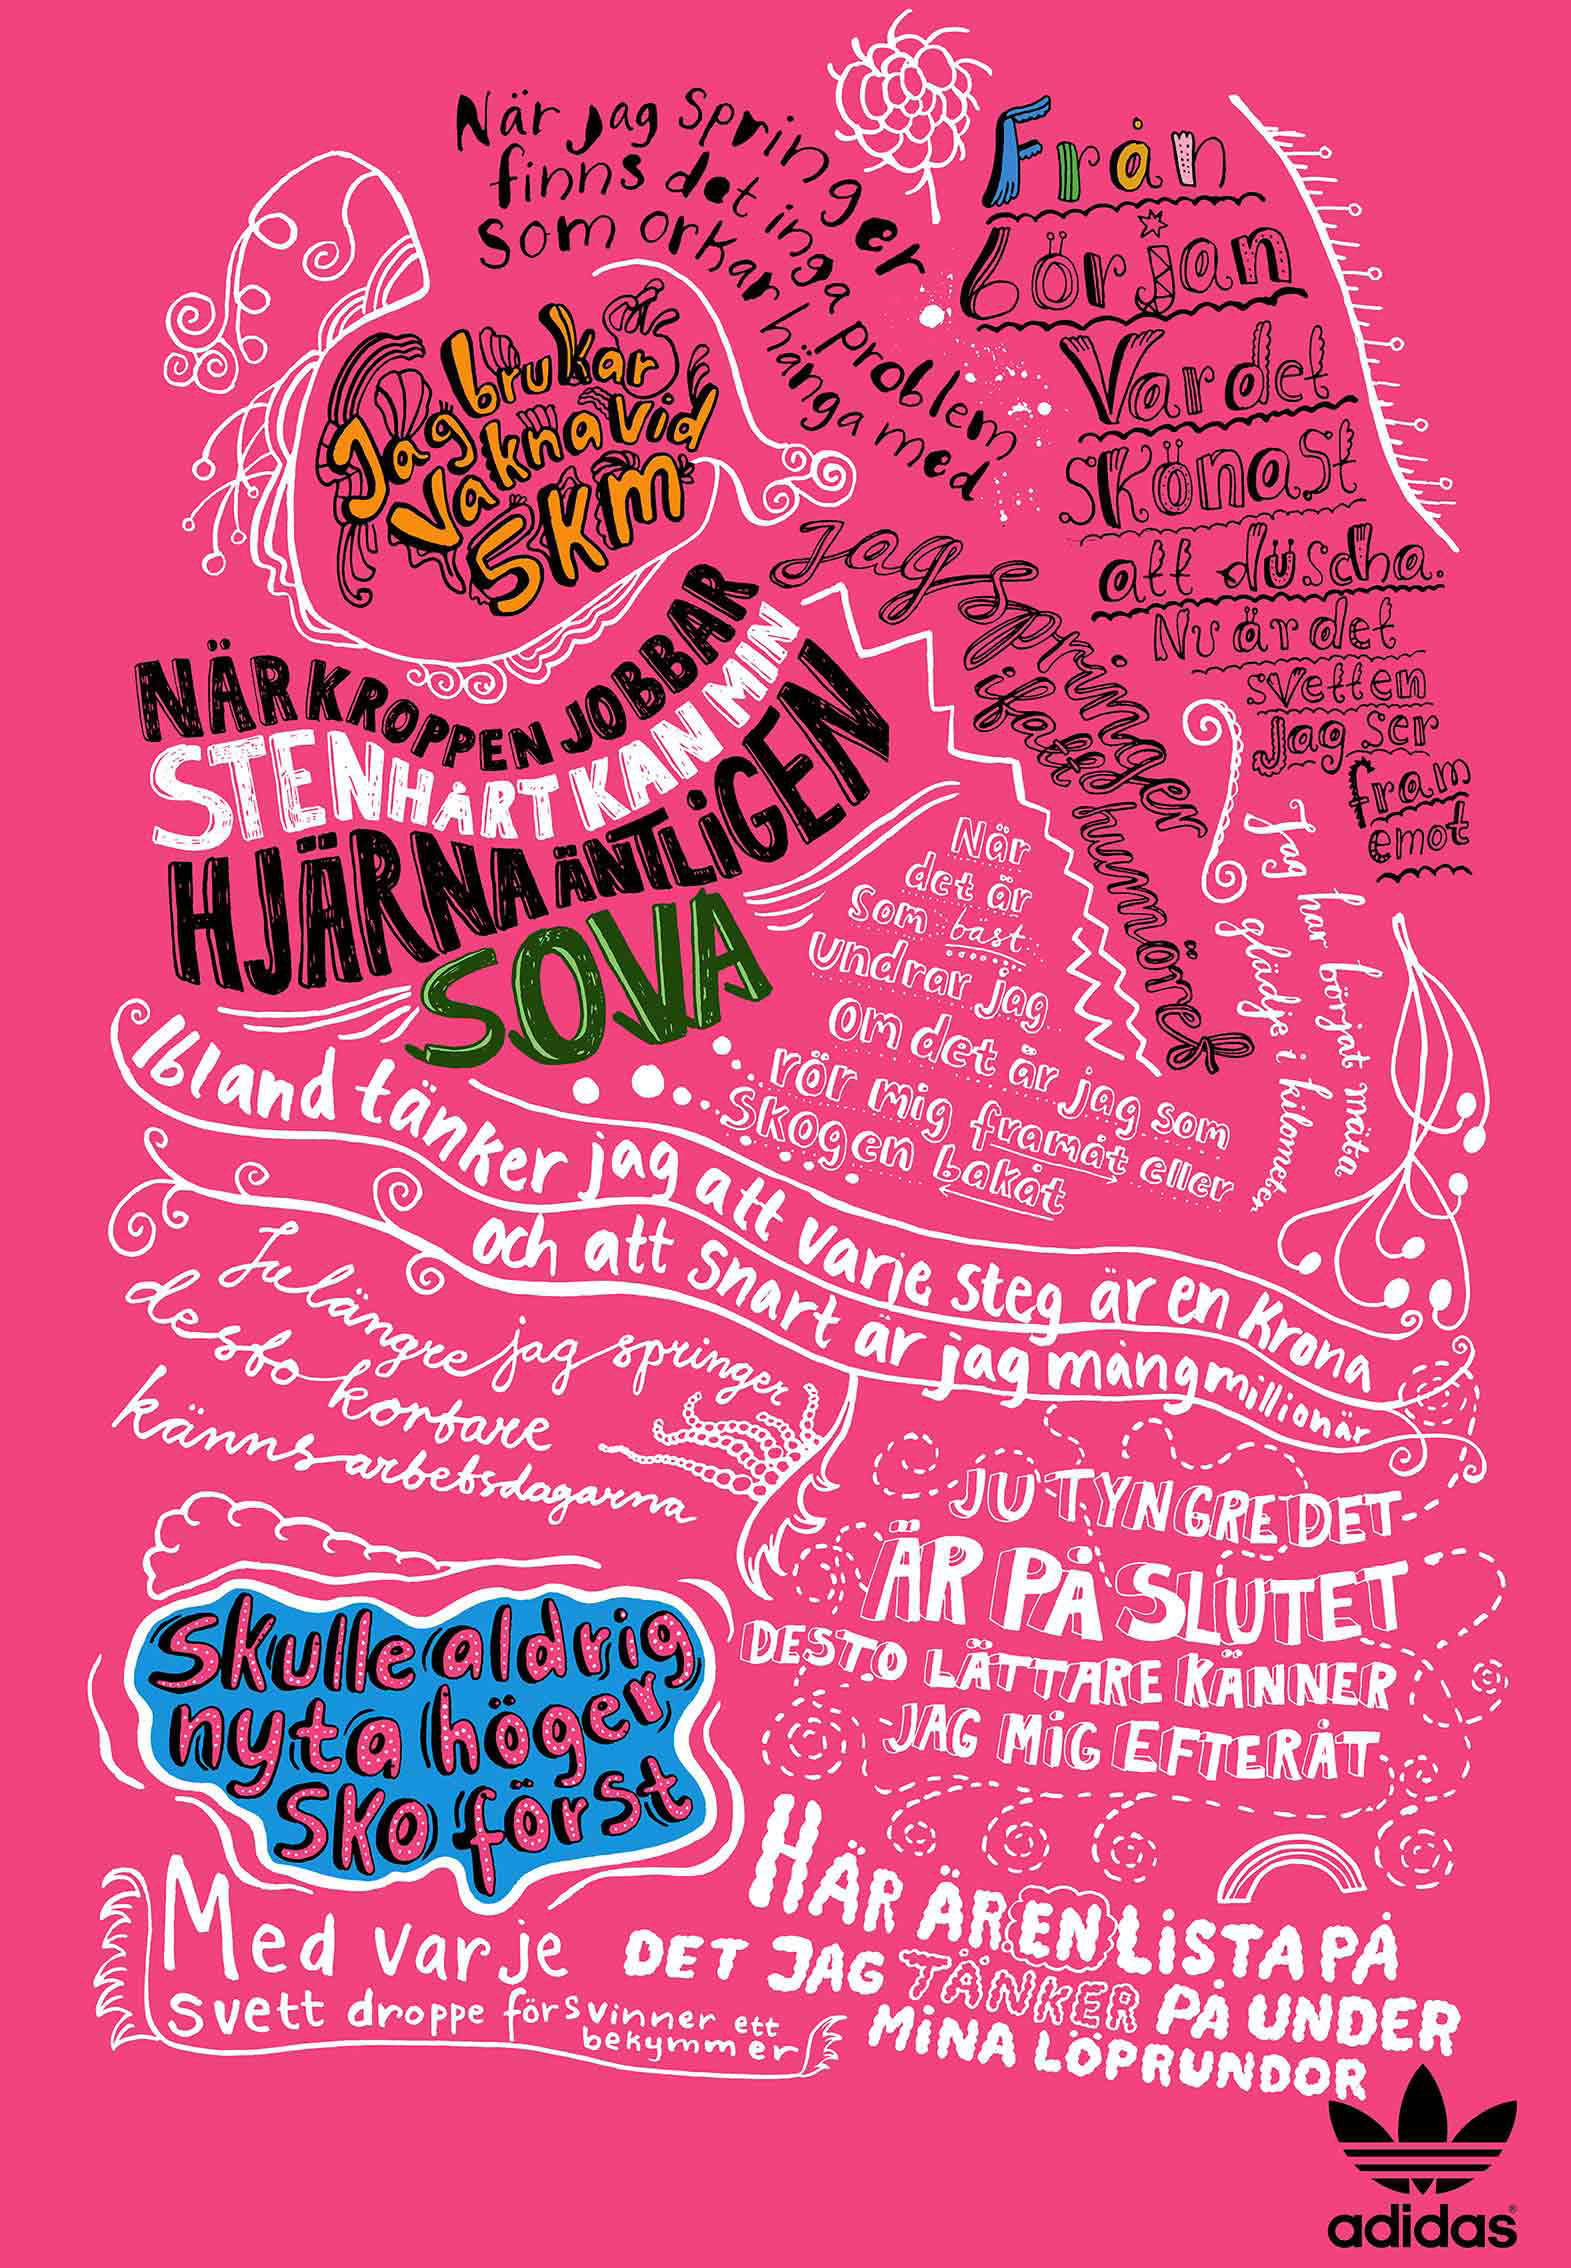 När jag springer
finns det inga problem
som orkar hänga med
Från
början
Var det
skönast
att duscha.
Nu är det
svetten
jag ser
fram
emot
Jag brukar
vakna vid
5km
NÄR KROPPEN JOBBAR
STENHÅRT KAN MIN
HJÄRNA ÄNTLiGEN
SOVA
Jag springer
ifatt humöret
När
det är
som bäst
undrar jag
om det är jag som
rör mig framåt eller
skogen bakåt
Jag har börjat mäta
glädje i kilometer
Ibland tänker jag att varje steg är en krona
och att snart är jag mångmillionär
Ju längre jag springer
desto kortare
känns arbetsdagarna
JU TYNGRE DET
ÄR PÅ SLUTET
DESTO LÄTTARE KÄNNER
JAG MiG EFTERÅT
Skulle aldrig
nyta höger
sko först
Med varje
svett droppe försvinner ett
bekymmer
HÄR ÄR EN LiSTA PÅ
DET JAG TÄNKER PÅ UNDER
MiNA LÖPRUNDOR
adidas®